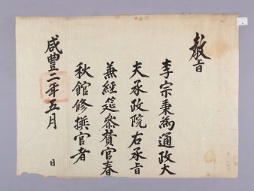 敎旨
李宗秉爲通政大
夫承政院右承旨
兼經筵參贊官春
秋館修撰官者
咸豐二年五月　日